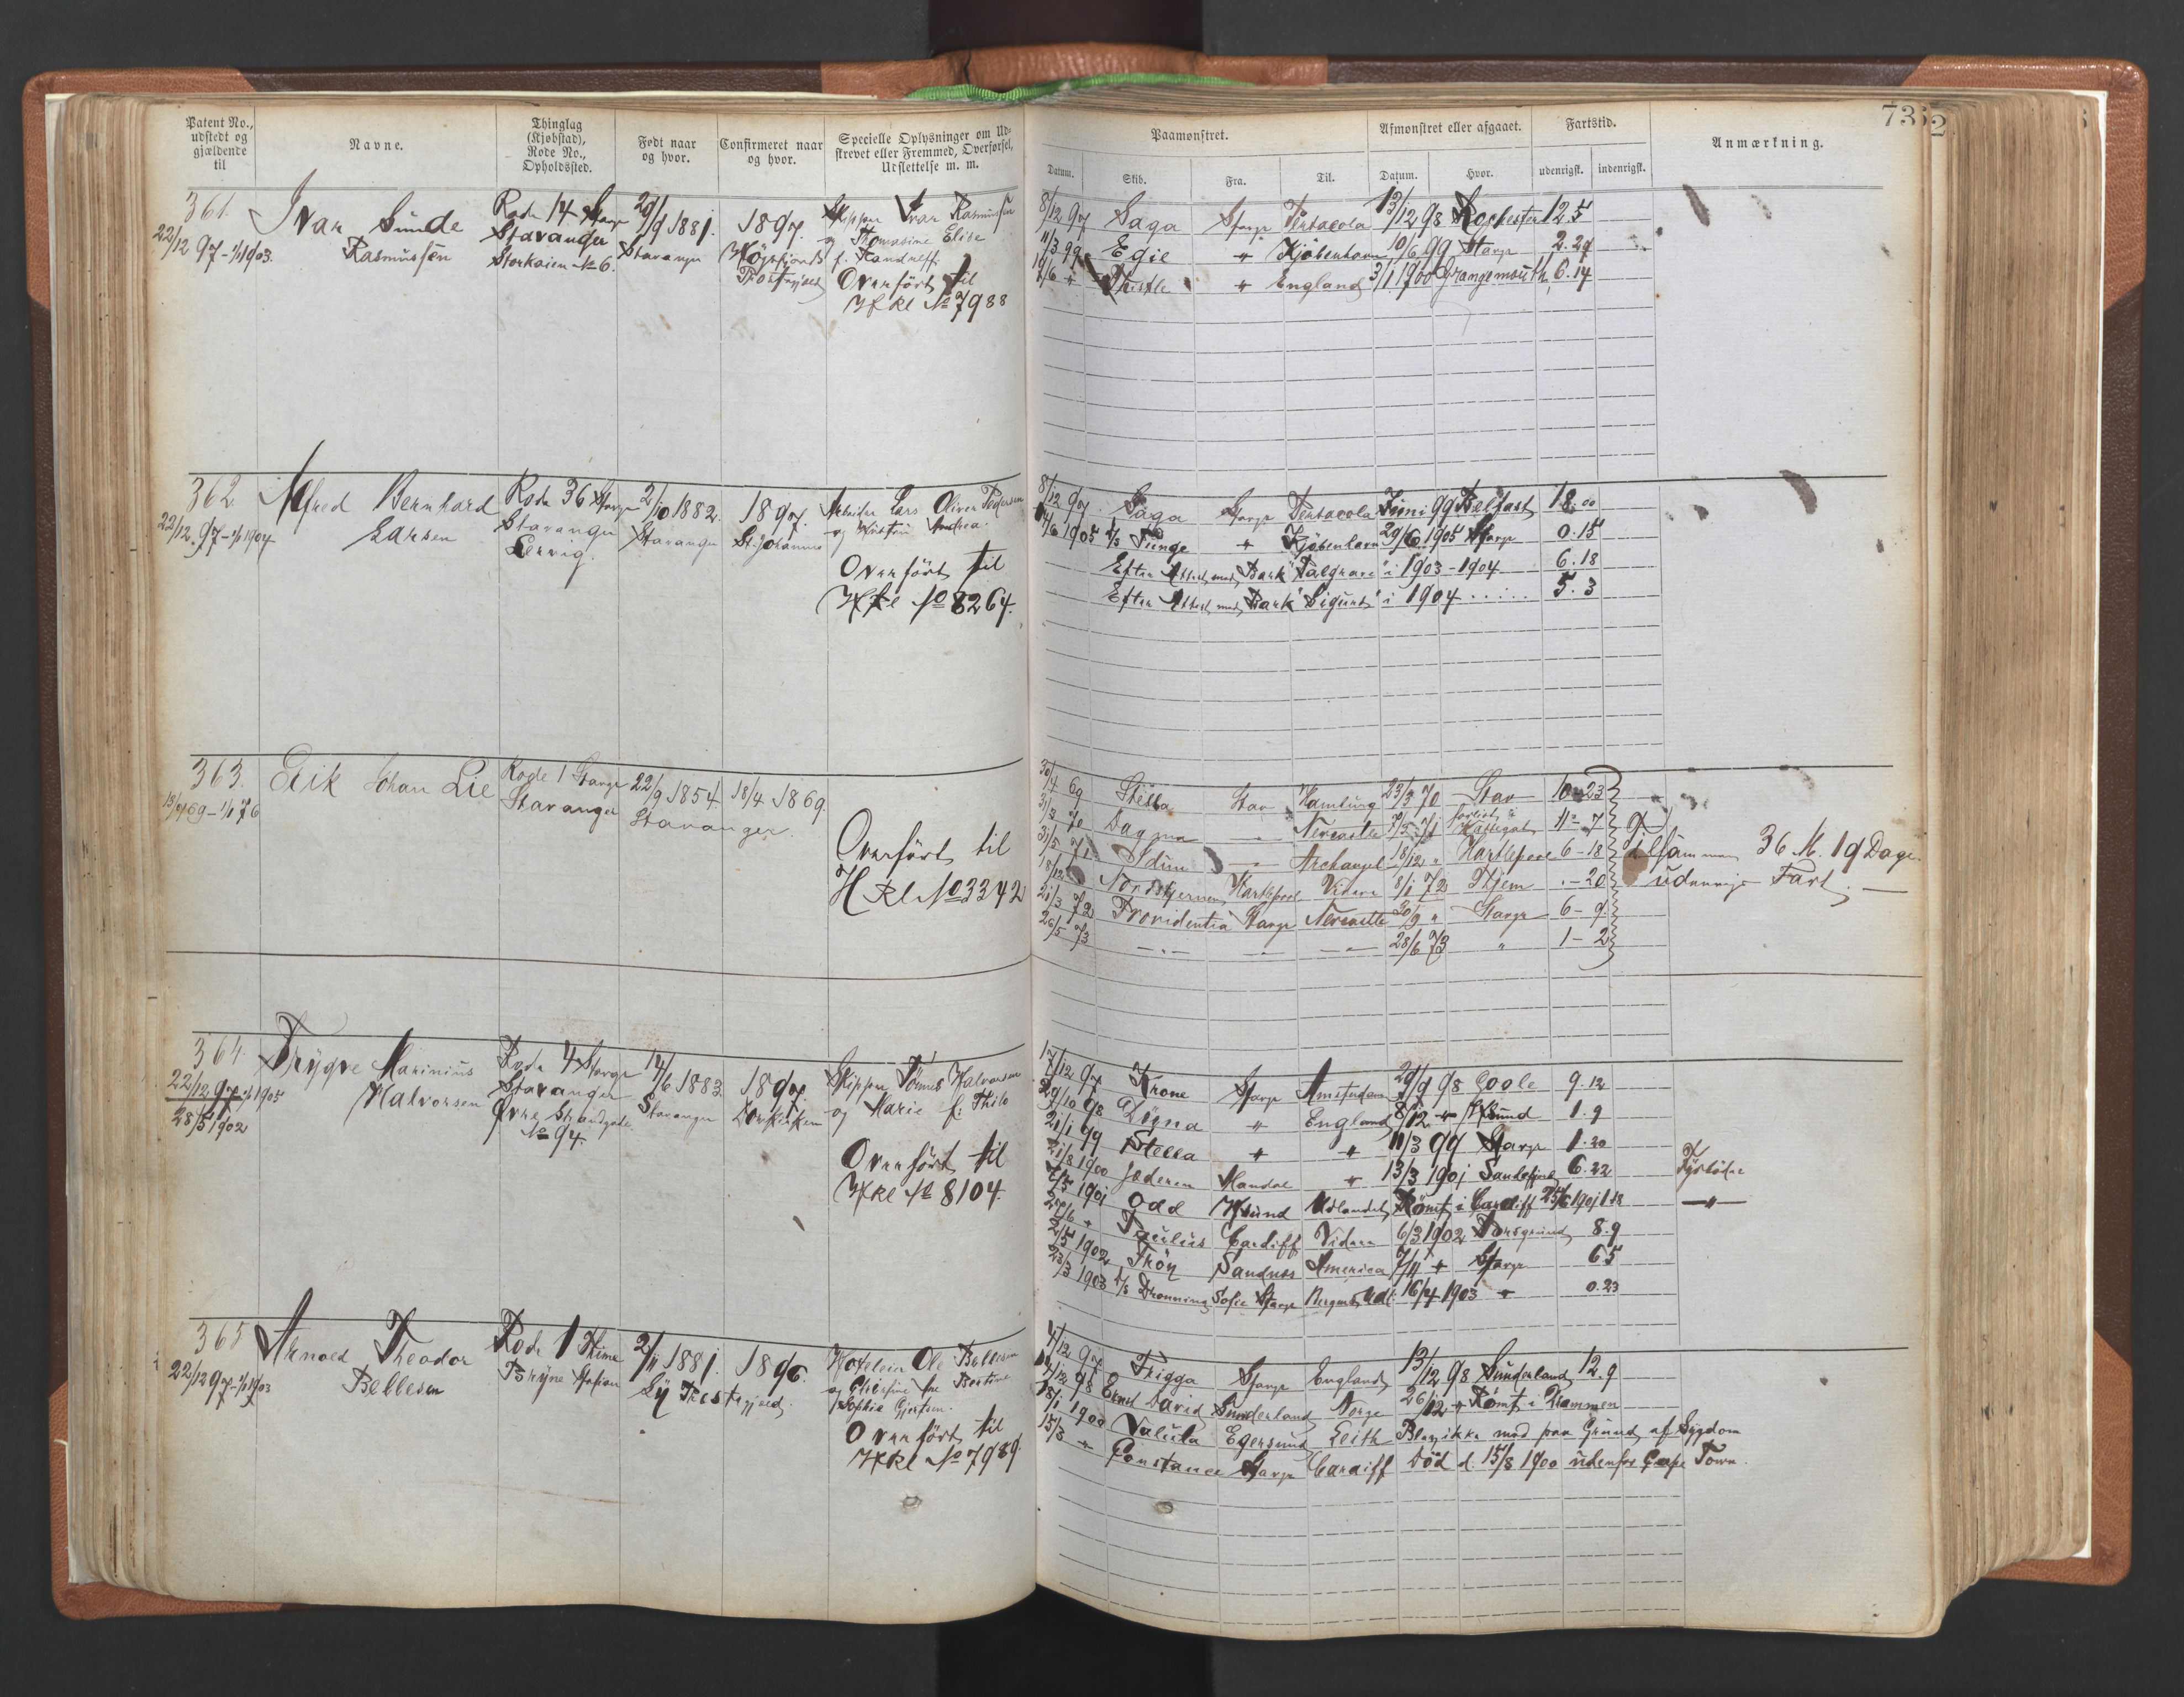 Patent No., udstedt og gjældende til
Navne.
Thinglag (Kjøbstad), Rode No., Opholdssted.
Født naar og hvor.
Confirmeret naar og hvor.
Specielle Oplysninger om Udskrevet eller Fremmed, Overførsel, Udslettelse m. m.
Paamønstret.
Afmønstret eller afgaaet.
Fartstid.
Anmærkning.
73
2
Datum.
Skib.
Fra.
Til.
Datum.
Hvor.
udenrigsk.
indenrigsk.
361.
22/12 97 - 1/1 1903
Ivar Sunde
Rasmussen
Rode 14 Stavgr
Stavanger
Storkaien No 6.
29/9 1881.
Stavanger
1897.
Høgsfjords
Præstegjæld
Skipper Ivar Rasmussen
og Thomasine Elise
f. Randulff
Overført til
Hfkl No 7988
8/12 97 Saga Stavgr Pentacola 13/12 98 Rochester 12.5
11/3 99 Egil " Kjøbenhavn 10/6 99 Stavgr 2.29
" Thistle " England 3/1 1900 Grangemouth 6.14
362.
22/12 97 - 1/1 1904
Alfred Bernhard
Larsen
Rode 36 Stavgr
Stavanger
Lervig.
2/10 1882.
Stavanger
1897.
St. Johannes
Arbeider Lars Oliver Pedersen
og Kirsten Andrea.
Overført til
Hfkl No 8264.
8/12 97 Saga Stavgr Pentacola Juni 99 Belfast 18.00
14/6 1905 D/S Tunge " Kjøbenhavn 29/6 1905 Stavgr 0.15
Efter Attest med Bark "Palgrave" i 1903-1904 6.18
Efter Attest med Bark "Sigurd" i 1904 5.3
363.
18/4 69 - 1/1 76
Erik Johan Lie
Rode 1 Stavgr
Stavanger
22/9 1854.
Stavanger.
18/4 1869.
Overført til
H Kl No 3342
30/4 69 Stella Stav Hamburg 23/3 70 Stav 10-23
31/3 70 Dagmar " Newcastle 71 forlist i Kattegat 11-7
31/5 71 Idun " Archangel 18/12 " Hartlepool 6-18
18/12 Nordstjernen Hartlepool Videre 8/1 72 Hjem .-20
21/3 72 Providentia Stavgr Newcastle 30/9 " Stavgr 6-9
26/5 73 " " " 28/6 73 " 1-2
tilsammen 36 M. 19 Dage
udenrigs Fart.
364.
22/12 97 - 1/1 1905
28/5 1902
Trygve Marinius
Halvorsen
Rode 4 Stavgr
Stavanger
Øvre Strandgade
No 94.
14/6 1883.
Stavanger
1897.
Domkirken
Skipper Tönnes Halvorsen
og Marie f: Thilo
Overført til
Hfkl No 8104.
17/12 97 Krone Stavgr Amsterdam 29/9 98 Goole 9.12
29/10 98 Døgna " England 8/12 " Hsund 1.9
21/1 99 Stella " " 11/3 99 Stavgr 1.20
21/8 1900 Jæderen Mandal " 13/3 1901 Sandefjord 6.22 Fyrbøder
7/5 1901 Odd Hsund Udlandet Rømt i Cardiff 25/6 1901 1.18 "
27/6 " Cardiff Videre 6/3 1902 Porsgrund 8.9
2/5 1902 Thöy Sandnes America 7/11 " Stavgr 6 5
23/3 1903 D/S Dronning Sofie Stavgr Bergen 16/4 1903 " 0.23
365
22/12 97 - 1/1 1903
Arnold Theodor
Bellesen
Rode 1 Thime
Bryne Station
2/11 1881.
Ly Prestegjæld.
1896.
Hoteleier Ole Bellesen
og
Sophie Gjertsen.
Overført til
Hfkl No 7989.
4/12 97 Frigga Stavgr England 13/12 98 Sunderland 12.9
14/12 98 Ernst David Sunderland Norge 26/12 " Rømt i Drammen
18/1 1900 Valuta Egersund Leith Blev ikke med paa Grund af Sygdom
15/3 " Constance Stavgr Cardiff Död d. 15/8 1900 udenfor Cape Town.